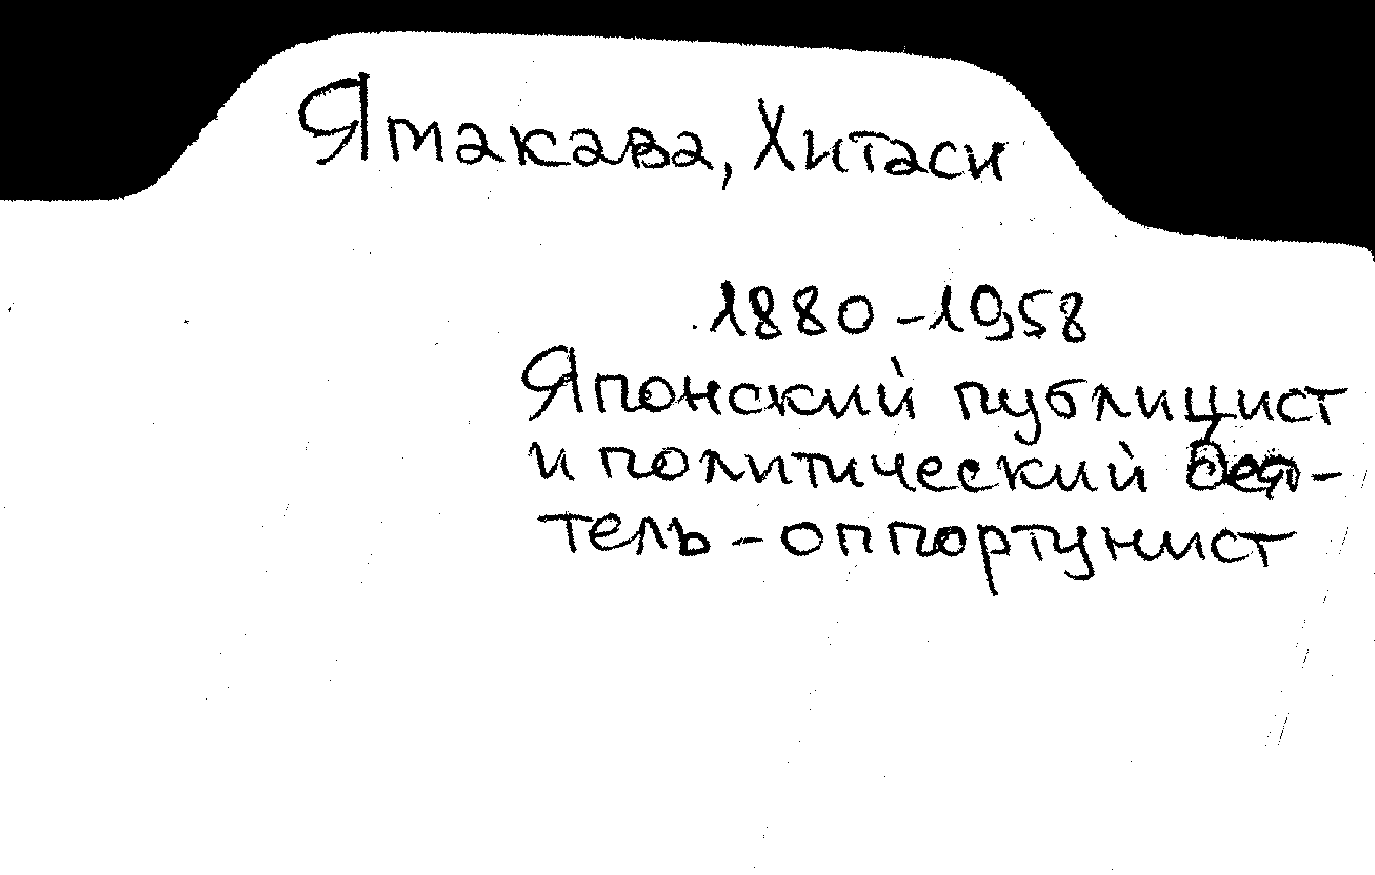 Ямакава, Хитаси
1880-1958
Японский публицист
и политический дея-
тель-оппортунист